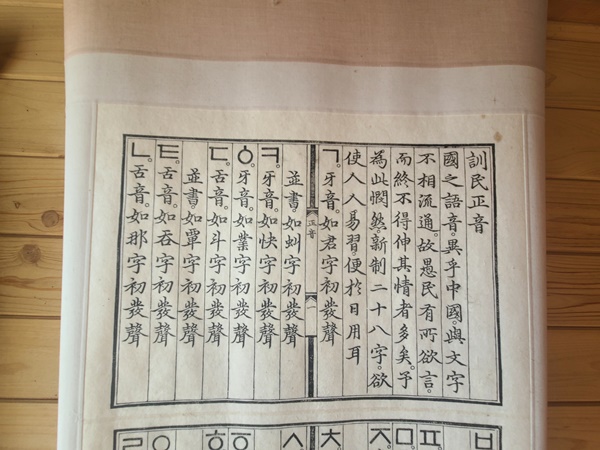 訓民正音
國之語音。異乎中國。與文字
不相流通。故愚民有所欲言。
而終不得伸其情者多矣。予
為此憫然。新制二十八字。欲
使人人易習。便於日用耳
ㄱ。牙音。如君字初發聲
正音 一
並書。如虯字初發聲
ㅋ。牙音。如快字初發聲
ㆁ。牙音。如業字初發聲
ㄷ。舌音。如斗字初發聲
並書。如覃字初發聲
ㅌ。舌音。如呑字初發聲
ㄴ。舌音。如那字初發聲
ㅂ
ㅍ
ㅁ
ㅈ
ㅊ
ㅅ
ㆆ
ㅎ
ㅇ
ㄹ